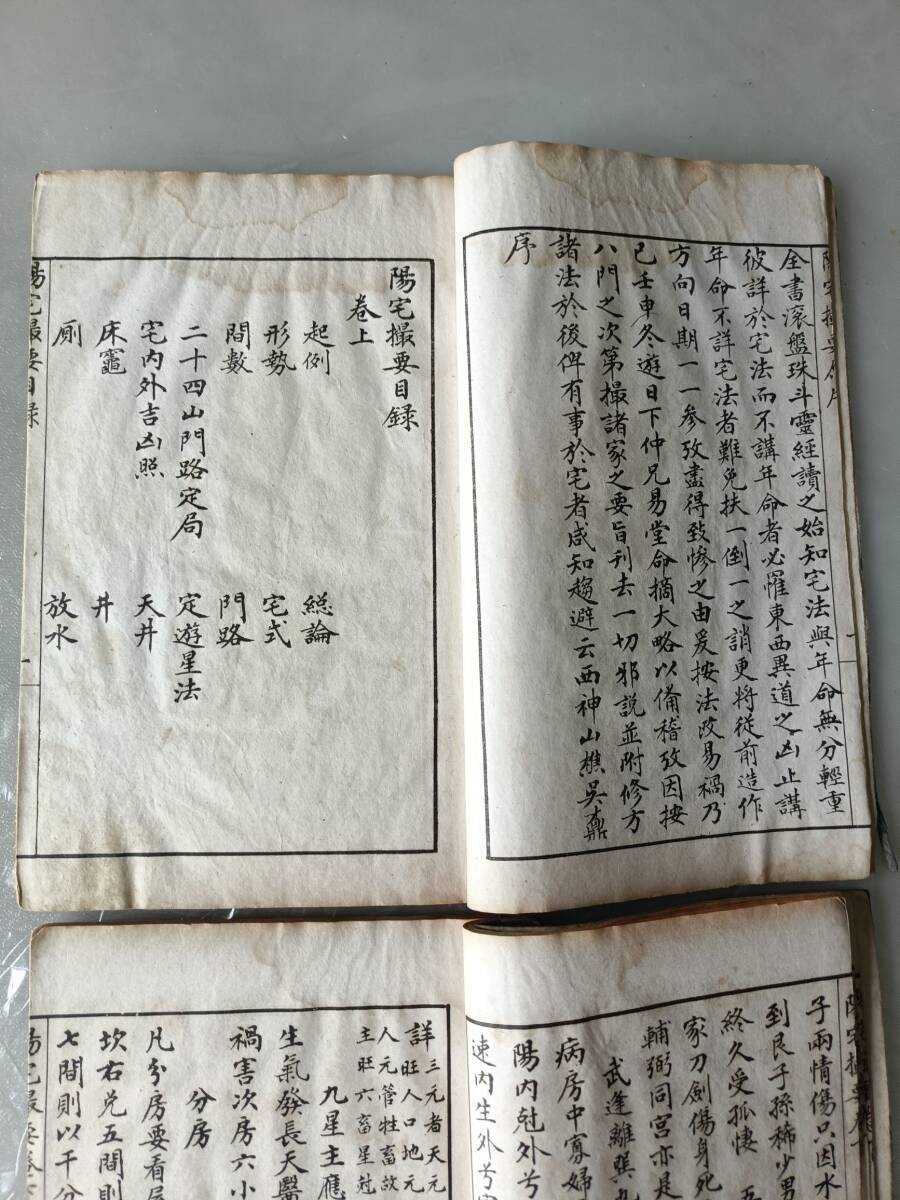 全書滚盤珠斗靈經讀之始知宅法與年命無分輕重
彼詳於宅法而不講年命者必罹東西異道之凶止講
年命不詳宅法者難免扶一倒一之誚更將從前造作
方向日期一一參攷盡得致惨之由爰按法改易禍乃
已壬申冬遊日下仲兄易堂命摘大略以備稽攷因按
八門之次第撮諸家之要旨刊去一切邪説並附修方
諸法於後俾有事於宅者咸知趨避云西神山樵吳鼒
序
陽宅撮要目録
卷上
起例 総論
形勢 宅式
間數 門路
二十四山門路定局 定遊星法
宅内外吉凶照 天井
床竈 井
厠 放水
陽宅撮要目録 一
子兩情傷只因水
到艮子孫稀少男
終久受孤悽
家刀劍傷身死
輔弼同宮亦是
武逢離巽
病房中寡婦
陽内尅外兮
速内生外兮
詳三元者天元
旺人口地元
人元管牲畜故
主旺六畜星尅
九星主應
生氣發長天醫
禍害次房六小
分房
凡分房要看
坎右兑五間則
七間則以干分